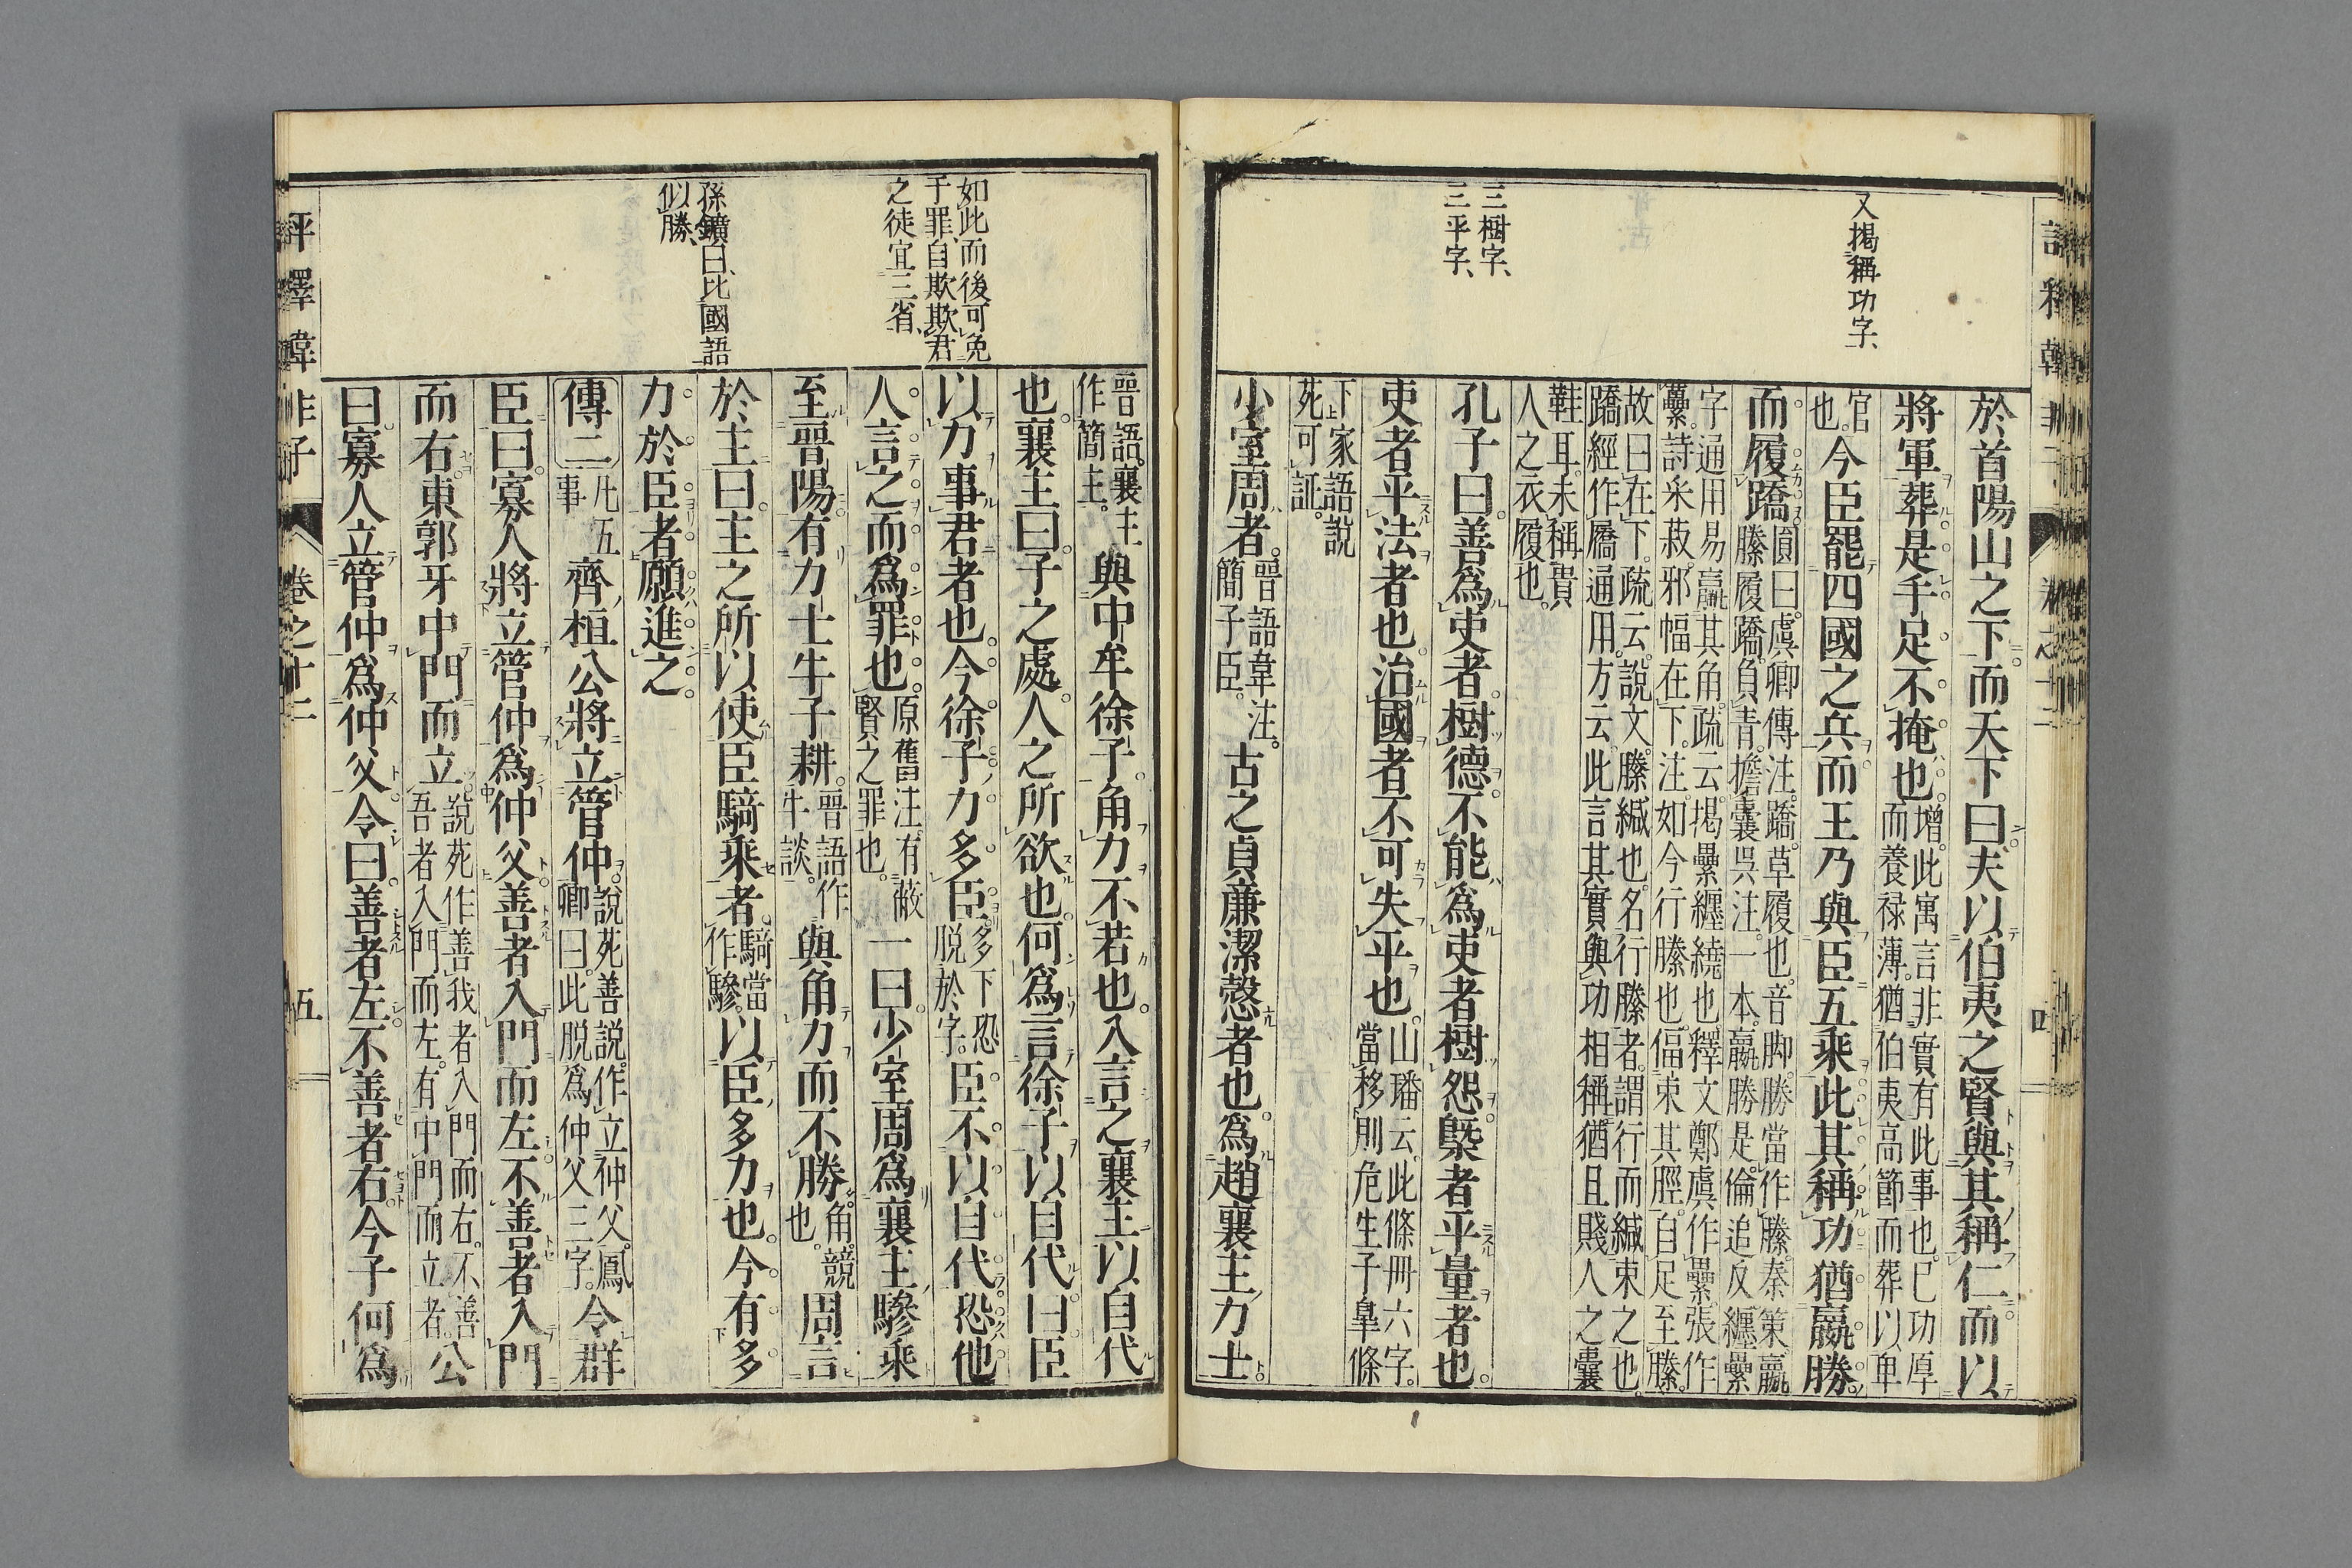 又揭稱功字、
三樹字、
三平字、
於首陽山之下而天下曰夫以伯夷之賢與其稱仁而以
將軍葬是手足不掩也增。此寓言非實有此事也。巳功厚
而養祿薄。猶伯夷高節而葬以卑
官
也。今臣罷四國之兵而王乃與臣五乘此其稱功猶嬴勝
而履蹻圓曰。虞卿傳注。蹻。草履也。音脚。勝當作縢。秦策。嬴
縢履蹻。負青。擔囊。吳注。一本。嬴勝是。倫追反。纏纍
字通用。易嬴其角。疏云。揭纍纏繞也。釋文。鄭虞作纍。張作
虆。詩采菽。邪幅在下。注。如今行縢也。偪束其脛。自足至膝。
故曰在下。疏云。說文。縢緘也。名行縢者。謂行而緘束之也。
蹻經作屩通用。方云。此言其實與功相稱。猶且賤人之囊
鞋耳。未稱貴
人之衣履也。
孔子曰善爲吏者樹德不能爲吏者樹怨槩者平量者也
吏者平法者也治國者不可失平也。山璠云。此條冊六字。
當移則危生子臯條
下家語說
死可証。
少室周者。晉語韋注。
簡子臣。古之貞廉潔慤者也。爲趙襄主力士
晉語。襄主
作簡主。與中牟徐子角力不若也。入言之襄主以自代
也。襄主曰子之處。人之所欲也。何爲言徐子以自代曰臣
以力事君者也。今徐子力多臣多下恐
脫於字。臣不以自代恐他
人言之而爲罪也。原舊注。有蔽
賢之罪也。一曰少室周爲襄主驂乘
至晉陽有力士牛子耕。晉語作
牛談。與角力而不勝。角。競
也。周言
於主曰主之所以使臣騎乘者。騎當
作驂。以臣多力也。今有多
力於臣者願進之。
傳二凡五
事齊桓公將立管仲。說苑善說。作立仲父。鳳
卿曰。此脫爲仲父三字。令群
臣曰。寡人將立管仲爲仲父善者入門而左不善者入門
而右。東郭牙中門而立。說苑作善我者入門而右。不善
吾者入門而左。有中門而立者。公
曰寡人立管仲爲仲父令曰善者左不善者右今子何爲
如此而後可免
于罪、自欺欺君
之徒宜三省、
孫鑛曰、比國語
似勝、
評釋韓非子 卷之十二 五